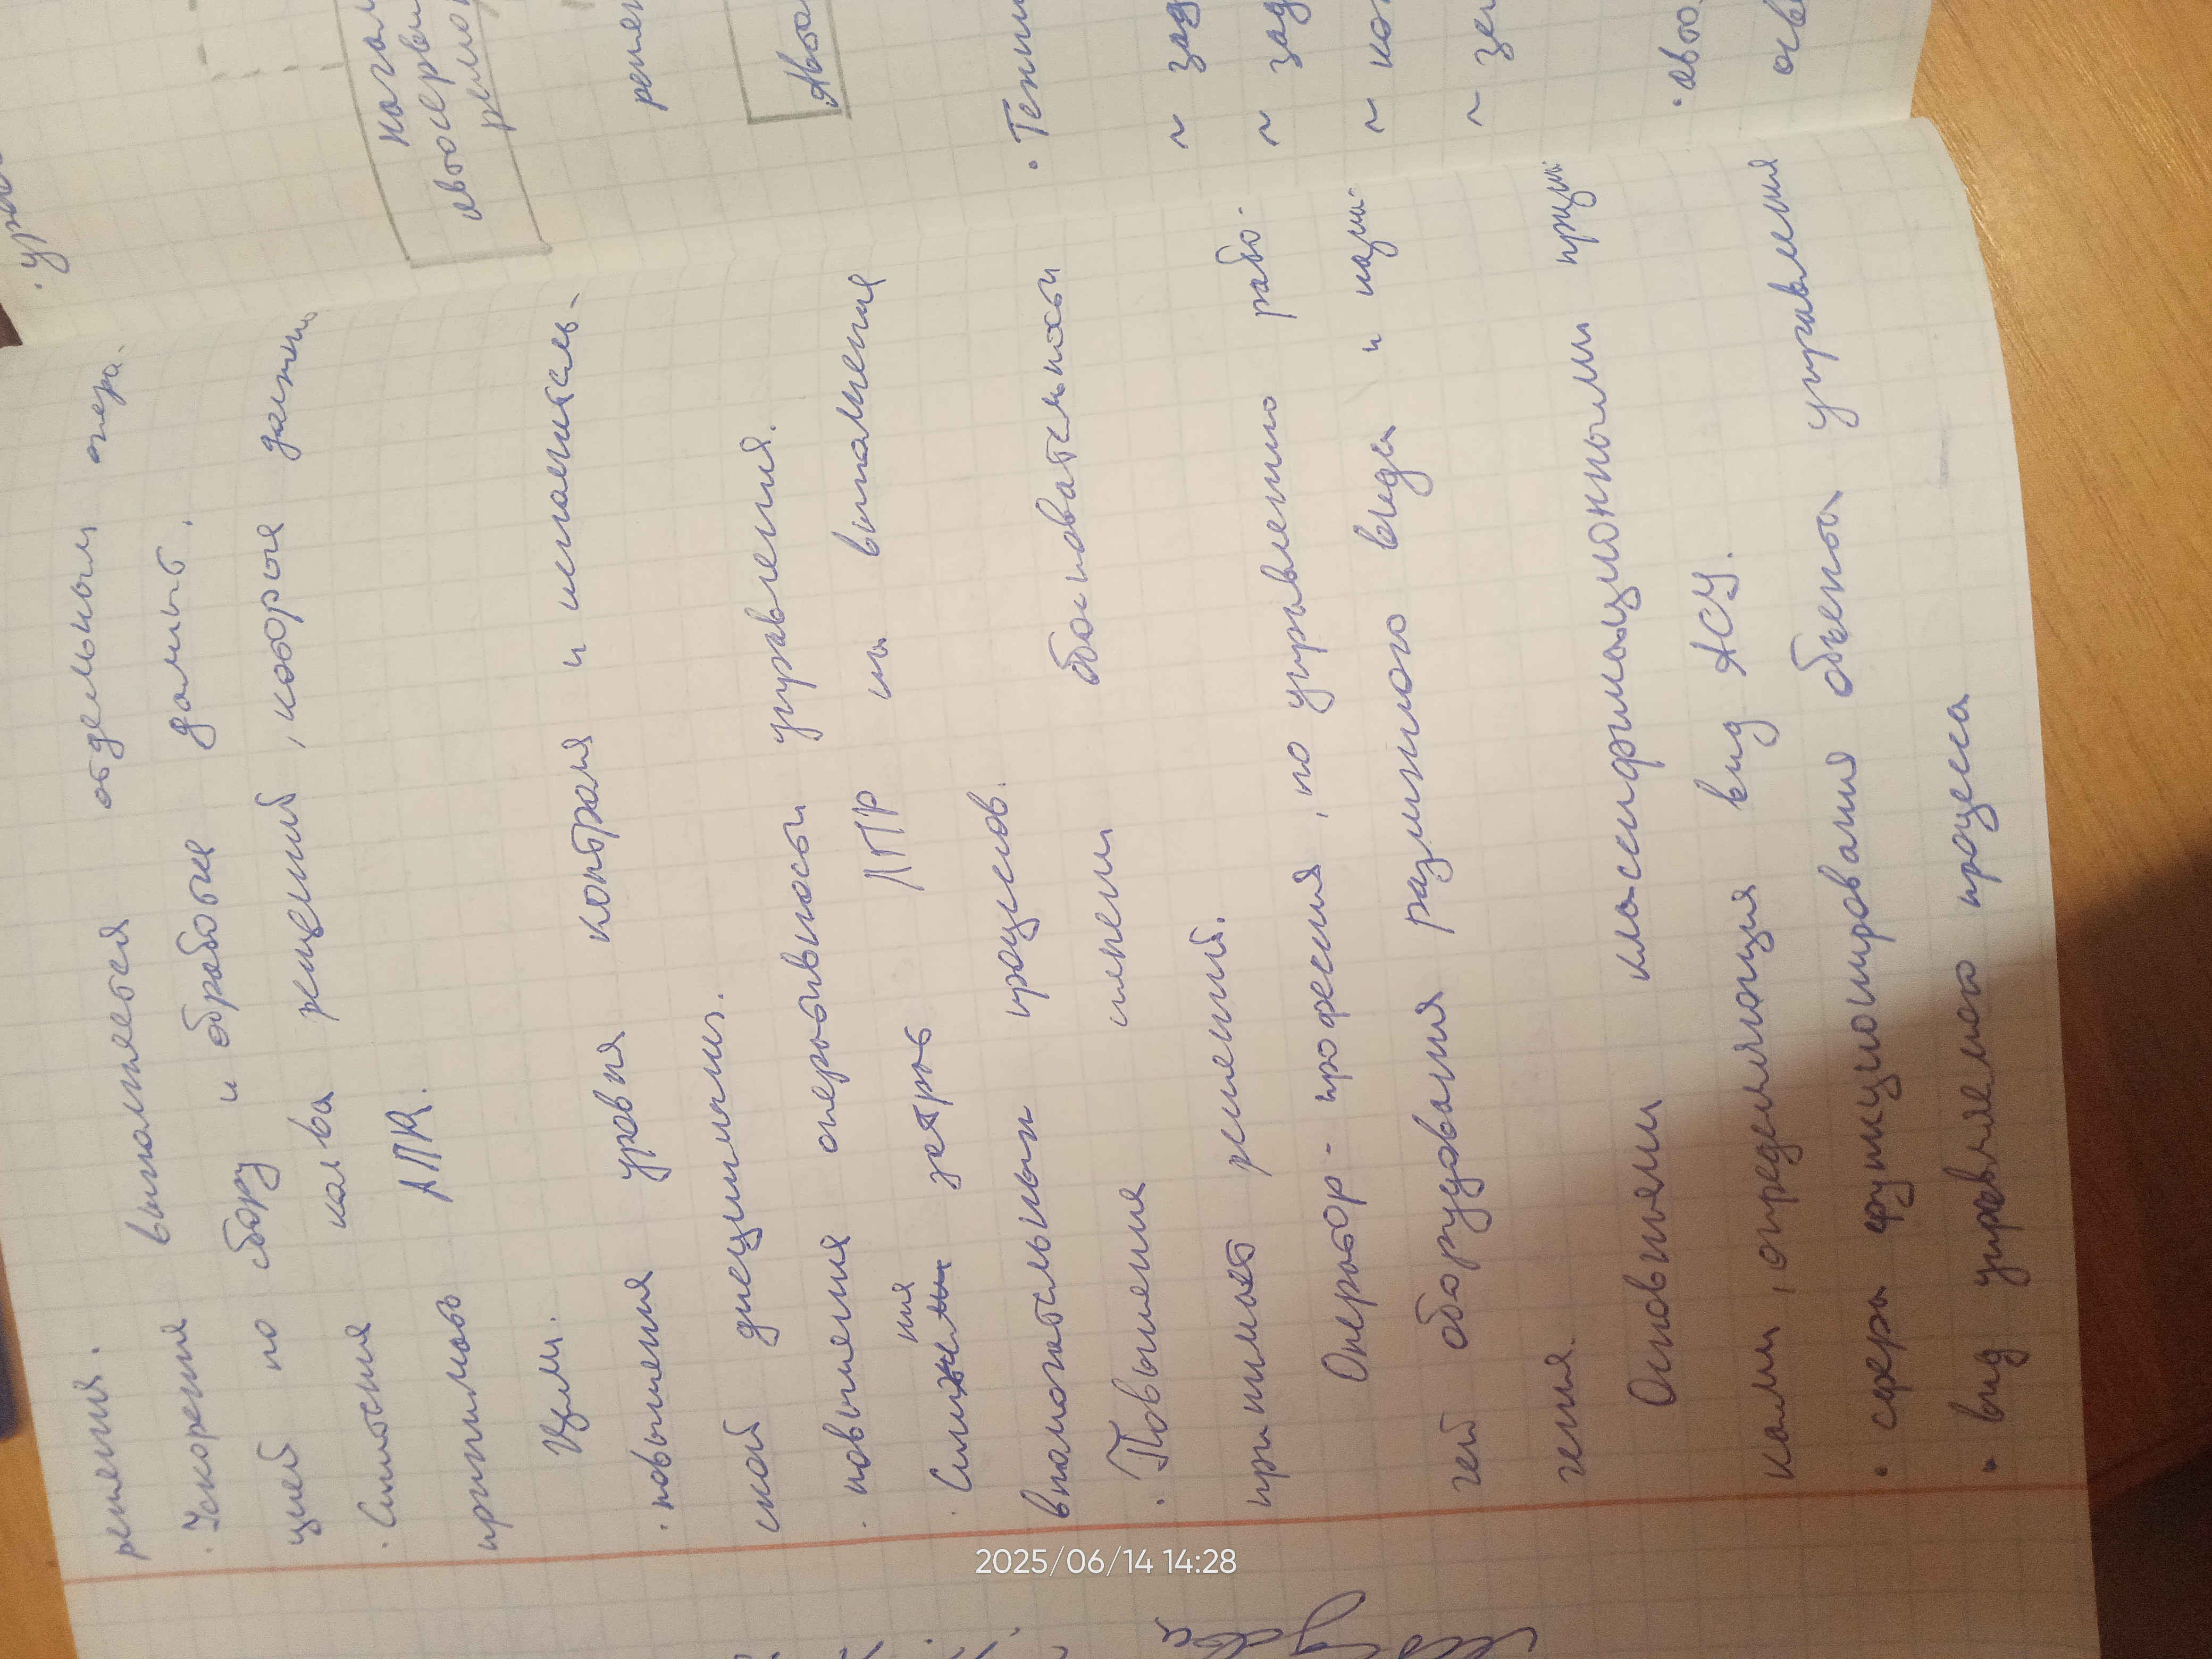 решения.
· Ускорение выполняется отдельным опера-
цией по сбору и обработке данных.
· Снижения кол ва решений, которые должны
принимать ЛПР.
Цели.
· повышения уровня контроля и исполнитель-
ской дисциплины.
· повышения оперативности управления.
· Снижения затрат ЛПР на выполнения
вспомогательных процессов.
· Повышение степени обосновательности
принимает решений.
Оператор - профессия, по управлению рабо-
чей оборудования различного вида и назна-
чения.
Основными классификационными призна-
ками, определяющия вид АСУ.
· сфера функционирования объекта управления
· вид управляемого процесса
· упра
авто
реше
Авто
· Техни
~ зад
~ зад
~ ко
~ зе
· авто
осв
2025/06/14 14:28